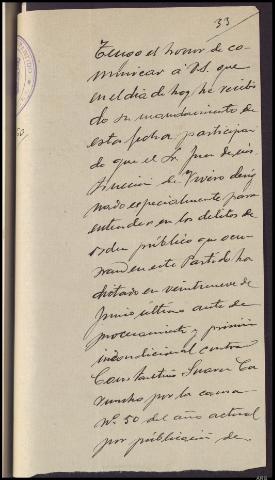 33
Tengo el honor de co-
municar á V.S. que
en el dia de hoy he recibi
do su mandamiento de
esta fecha participan
do que el Sr. Juez de ins
trucción de Vivero desig
nado especialmente para
entender en los delitos de
orden público que ocu
rran en este Partido ha
dictado en veintinueve de
Junio último auto de
procesamiento y prisión
incondicional contra
Constantino Suarez Ca
runcho por la causa
nº 50 del año actual
por publicación de